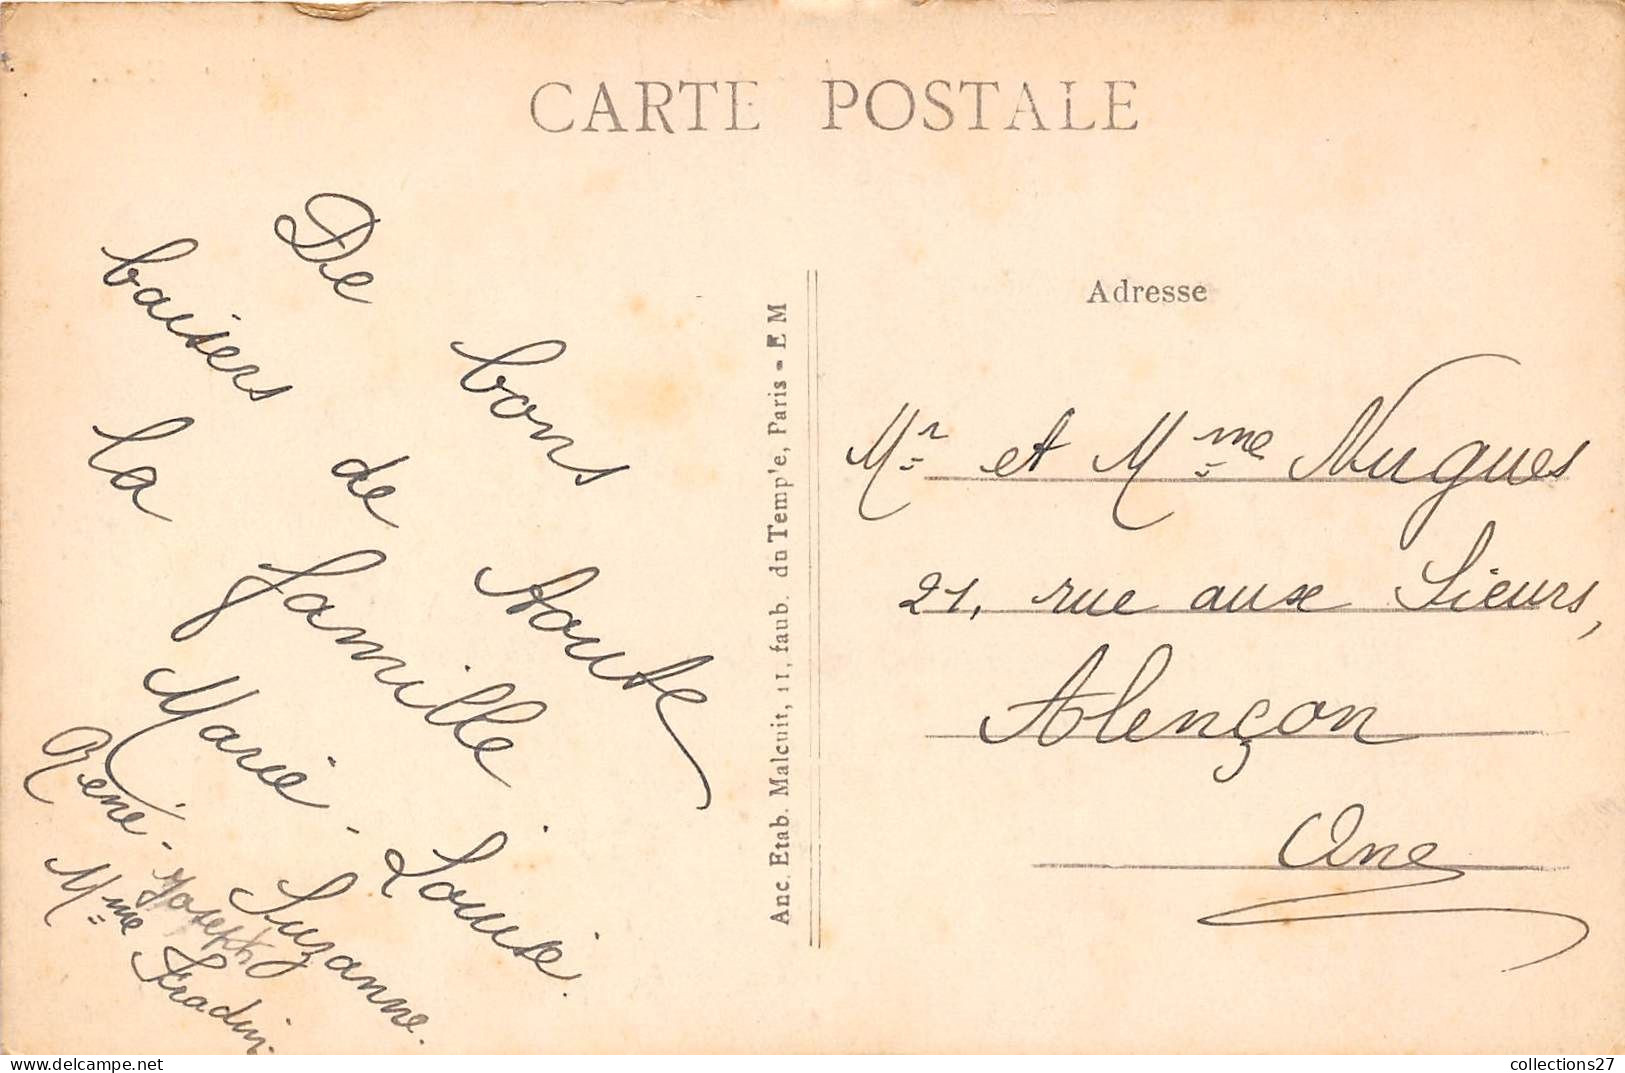 CARTE POSTALE
De bons
baisers de toute
la famille
Marie-Louise.
René - Joseph Suzanne.
Mme Fradin.
Anc. Etab. Malcuit, 11, faub. du Temp'e, Paris - E M
Adresse
Mr et Mme Nugues
21, rue aux Sieurs,
Alençon
Orne
collections27